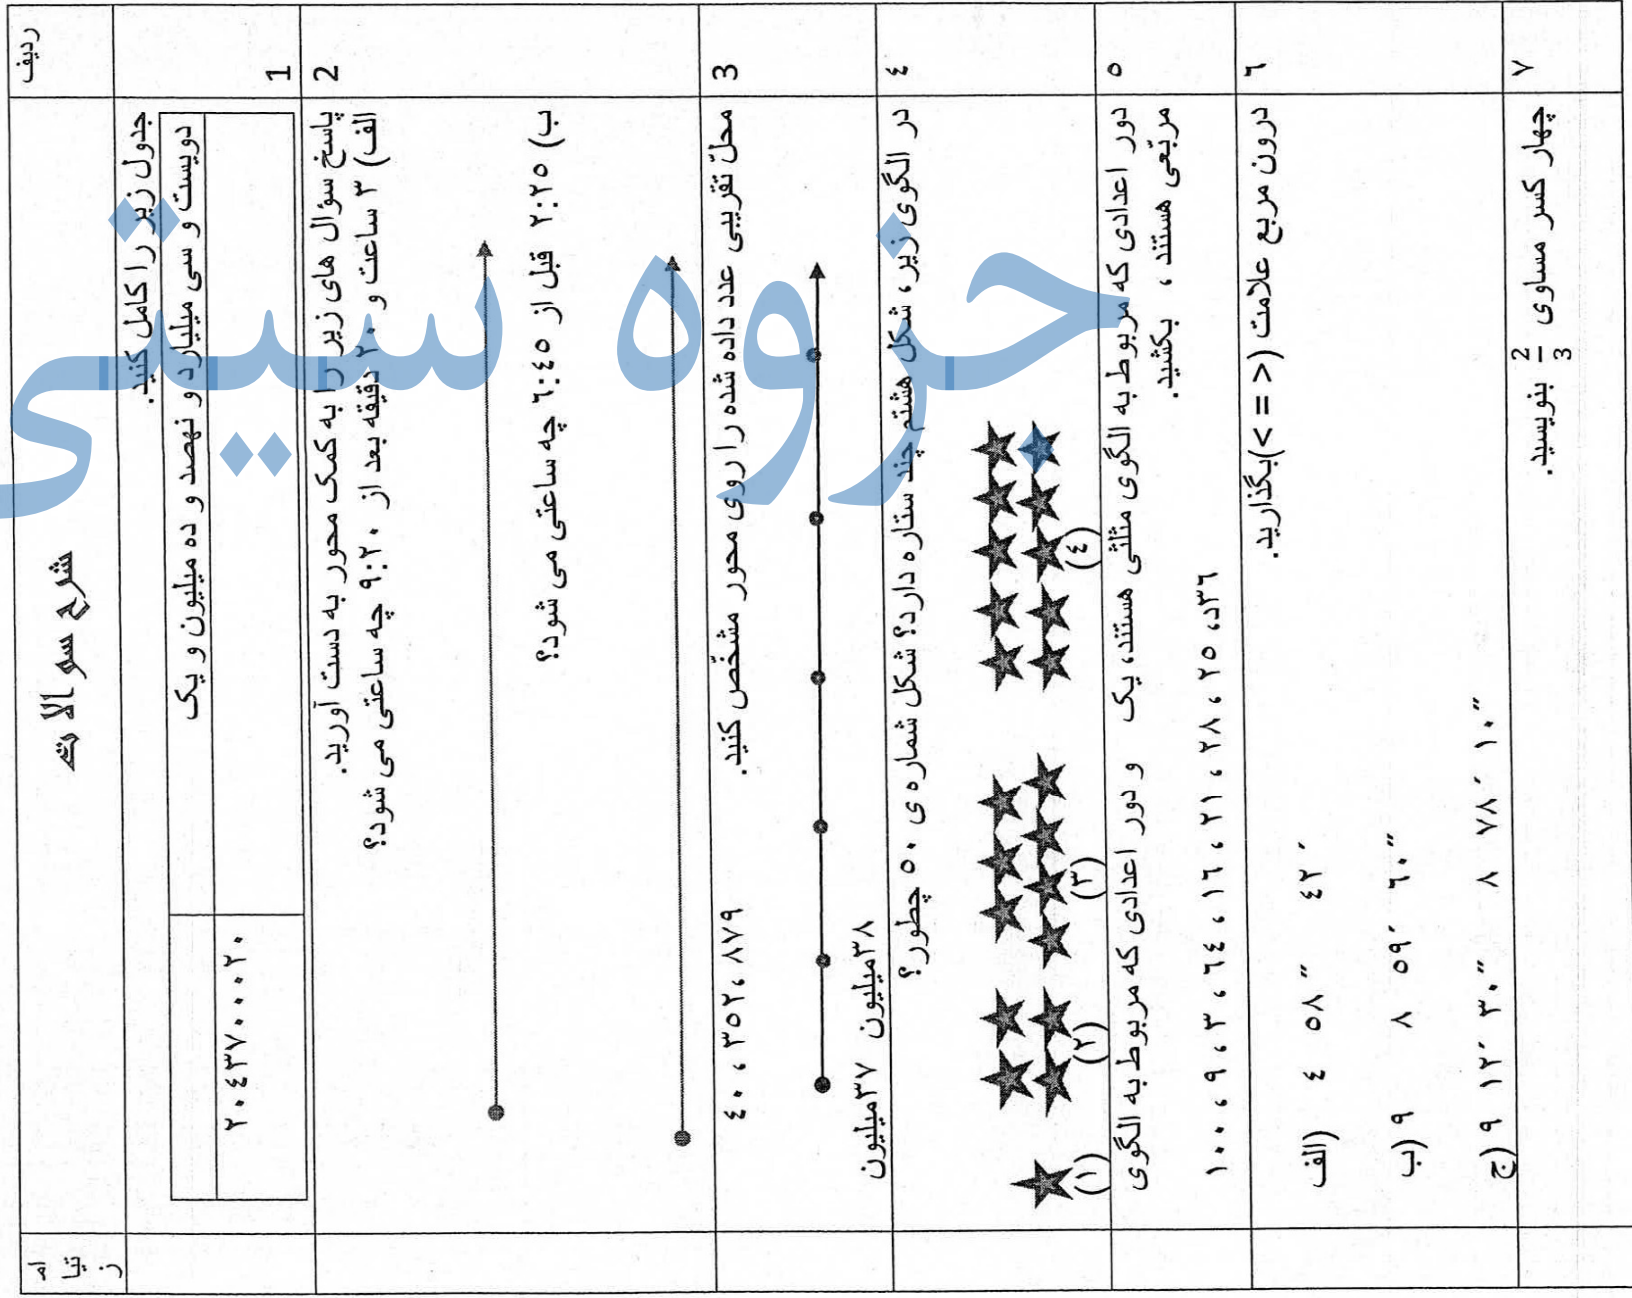 ردیف
شرح سوالات
1
جدول زیر را کامل کنید.
دویست و سی میلیارد و نهصد و ده میلیون و یک
۲۰٤۳۷۰۰۰۲۰
2
پاسخ سؤال های زیر را به کمک محور به دست آورید.
الف) ۳ ساعت و ۲۰ دقیقه بعد از ۹:۲۰ چه ساعتی می شود؟
ب) ۲:۲٥ قبل از ٦:٤٥ چه ساعتی می شود؟
3
محلّ تقریبی عدد داده شده را روی محور مشخّص کنید.
٤۰، ۳٥۲، ۸۷۹
۳۷میلیون ۳۸میلیون
٤
در الگوی زیر، شکل هشتم چند ستاره دارد؟ شکل شماره ی ٥۰ چطور؟
(۱) (۲) (۳) (٤)
٥
دور اعدادی که مربوط به الگوی مثلثی هستند، یک و دور اعدادی که مربوط به الگوی
مربّعی هستند ، بکشید.
۱۰۰، ۹، ۳، ٦٤، ۱٦، ۲۱، ۲۸، ۲٥، ۳٦د
٦
درون مربع علامت (< = >)بگذارید.
الف) ٤ ٥۸″ ٤۲′
ب) ۹ ۸ ٥۹′ ٦۰″
ج) ۹ ۱۲′ ۳۰″ ۸ ۷۸′ ۱۰″
۷
چهار کسر مساوی 2/3 بنویسید.
جزوه سیتی